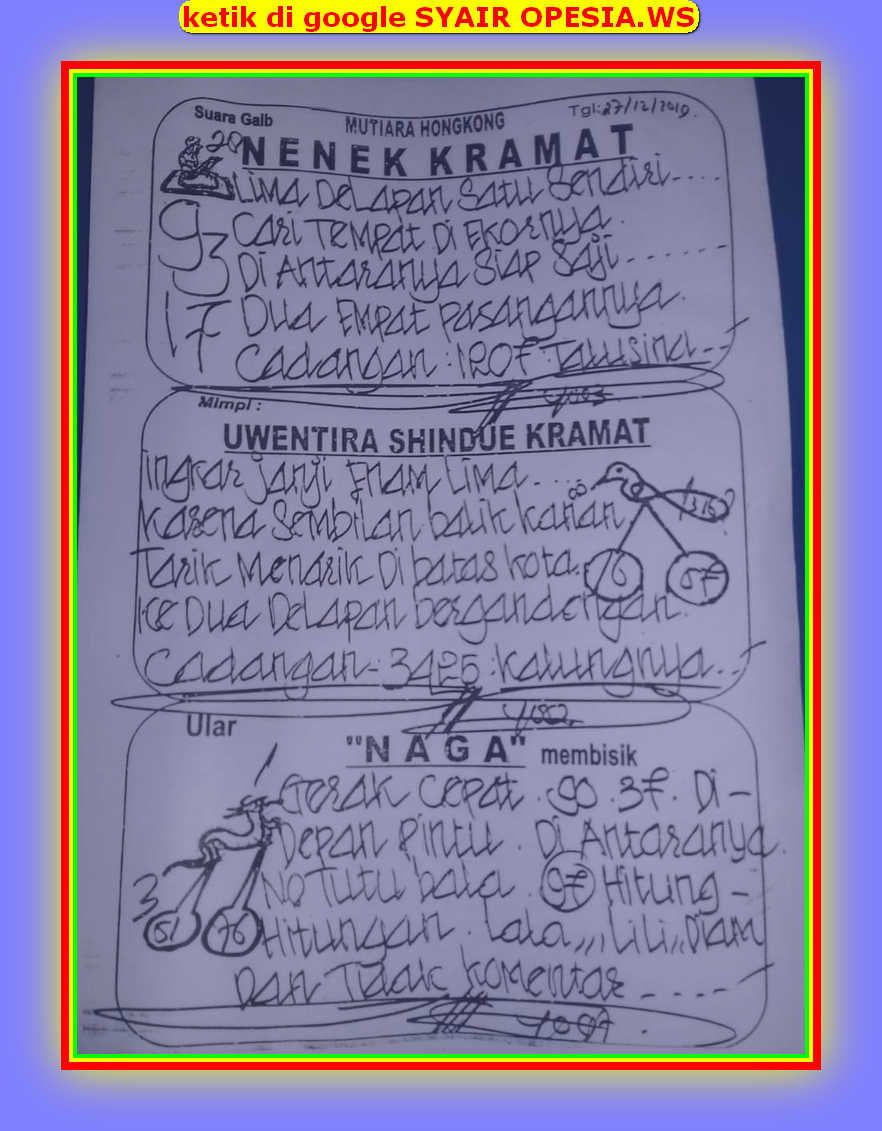 ketik di google SYAIR OPESIA.WS
Suara Gaib
MUTIARA HONGKONG
Tgl: 27/12/2019.
20
NENEK KRAMAT
Lima Delapan Satu Sendiri....
93
Cari Tempat Di Ekornya.
Di Antaranya Siap Saji.......
17
Dua Empat Pasangannya.
Cadangan :
Mimpi :
UWENTIRA SHINDUE KRAMAT
Ingkar Janji Enam Lima....
8
Karena Sembilan balik kanan
Tarik Menarik Di batas kota.
76
67
Ke Dua Delapan bergandengan.
Cadangan = 3425 : kalungnya...
Ular
"NAGA" membisik
Gerak Cepat . 90 . 37 . Di-
Depan Pintu . Di Antaranya.
3
51
76
No Tutu bala . 97 Hitung-
Hitungan . Lala,,, Lili,, Diam
Dan Tidak Komentar ....